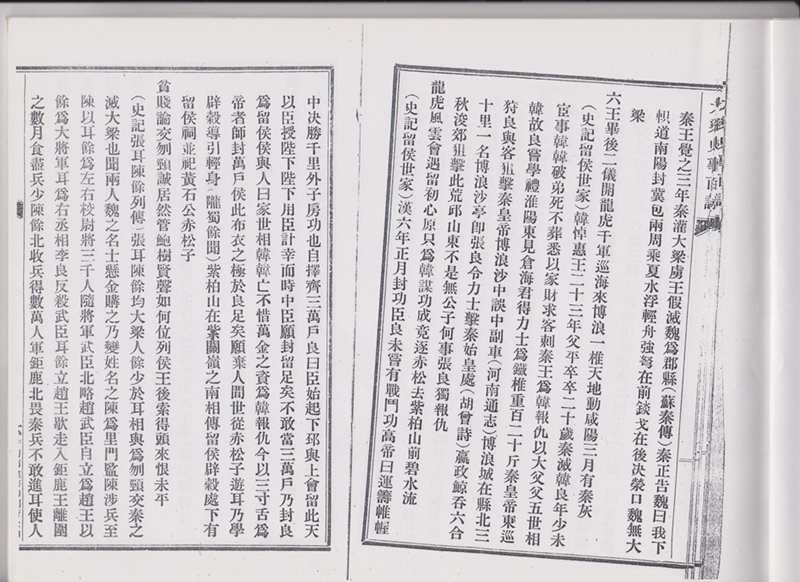 秦王覺之三年秦灌大梁虜王假滅魏爲郡縣(蘇秦傳)秦正告魏曰我下
軹道南陽封冀包兩周乘夏水浮輕舟強弩在前錟戈在後決滎口魏無大
梁
六王畢後二儀開龍虎千軍巡海來博浪一椎天地動咸陽三月有秦灰
(史記留侯世家)韓悼惠王二十三年父平卒卒二十歲秦滅韓良年少未
宦事韓韓破弟死不葬悉以家財求客刺秦王爲韓報仇以大父父五世相
韓故良嘗學禮淮陽東見倉海君得力士爲鐵椎重百二十斤秦皇帝東巡
狩良與客狙擊秦皇帝博浪沙中誤中副車(河南通志)博浪城在縣北三
十里一名博浪沙亭卽張良令力士擊秦始皇處(胡曾詩)嬴政鯨吞六合
秋浚郊狙擊此荒邱山東不是無公子何事張良獨報仇
龍虎風雲會遇留初心原只爲韓謀功成竟逐赤松去紫柏山前碧水流
(史記留侯世家)漢六年正月封功臣良未嘗有戰鬥功高帝曰運籌帷幄
中决勝千里外子房功也自擇齊三萬戶良曰臣始起下邳與上會留此天
以臣授陛下陛下用臣計幸而時中臣願封留足矣不敢當三萬戶乃封良
爲留侯侯與人曰家世相韓韓亡不惜萬金之資爲韓報仇今以三寸舌爲
帝者師封萬戶侯此布衣之極於良足矣願棄人間世從赤松子遊耳乃學
辟穀導引輕身(隴蜀餘聞)紫柏山在紫關嶺之南相傳留侯辟穀處下有
留侯祠並祀黃石公赤松子
貧賤論交刎頸誠居然管鮑樹賢聲如何位列侯王後索得頭來恨未平
(史記張耳陳餘列傳)張耳陳餘均大梁人餘少於耳相與爲刎頸交秦之
滅大梁也聞兩人魏之名士懸金購之乃變姓名之陳爲里門監陳涉兵至
陳以耳餘爲左右校尉將三千人隨將軍武臣北略趙武臣自立爲趙王以
餘爲大將軍耳爲右丞相李良反殺武臣耳餘立趙王歇走入鉅鹿王離圍
之數月食盡兵少陳餘北收兵得數萬人軍鉅鹿北畏秦兵不敢進耳使人